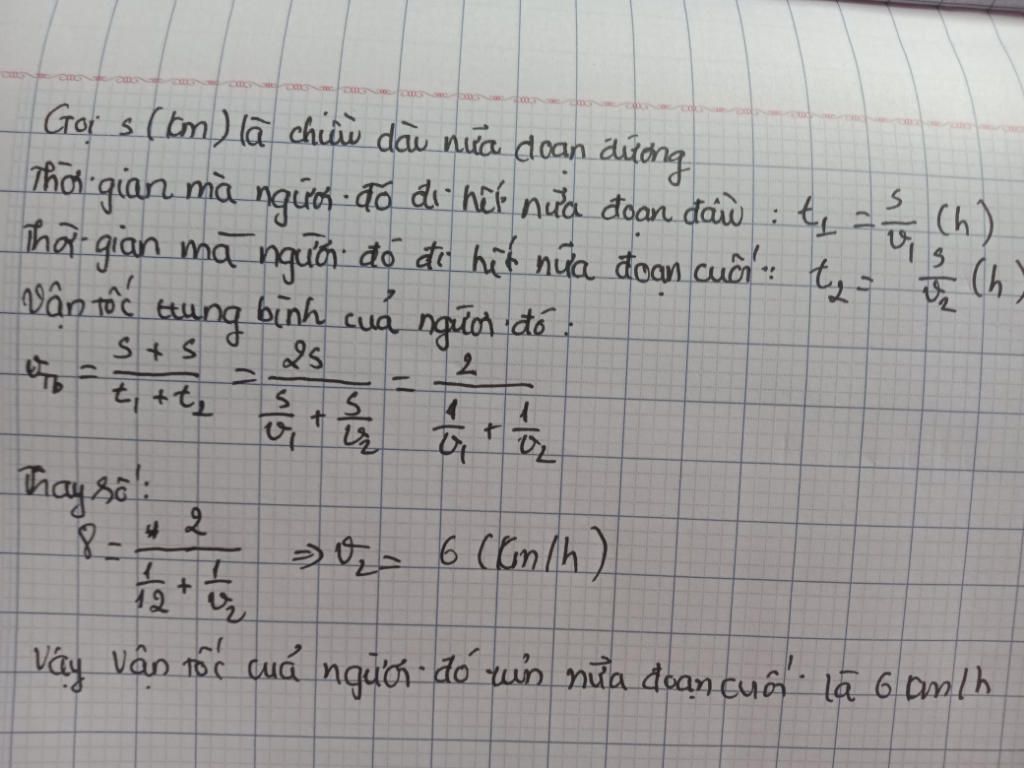 Gọi s (km) là chiều dài nửa đoạn đường
Thời gian mà người đó đi hết nửa đoạn đầu : t₁ = s/v₁ (h)
Thời gian mà người đó đi hết nửa đoạn cuối : t₂ = s/v₂ (h)
Vận tốc trung bình của người đó :
v_Tb = (s + s)/(t₁ + t₂) = 2s/(s/v₁ + s/v₂) = 2/(1/v₁ + 1/v₂)
Thay số :
8 = 2/(1/12 + 1/v₂) ⇒ v₂ = 6 (km/h)
Vậy vận tốc của người đó trên nửa đoạn cuối là 6 km/h